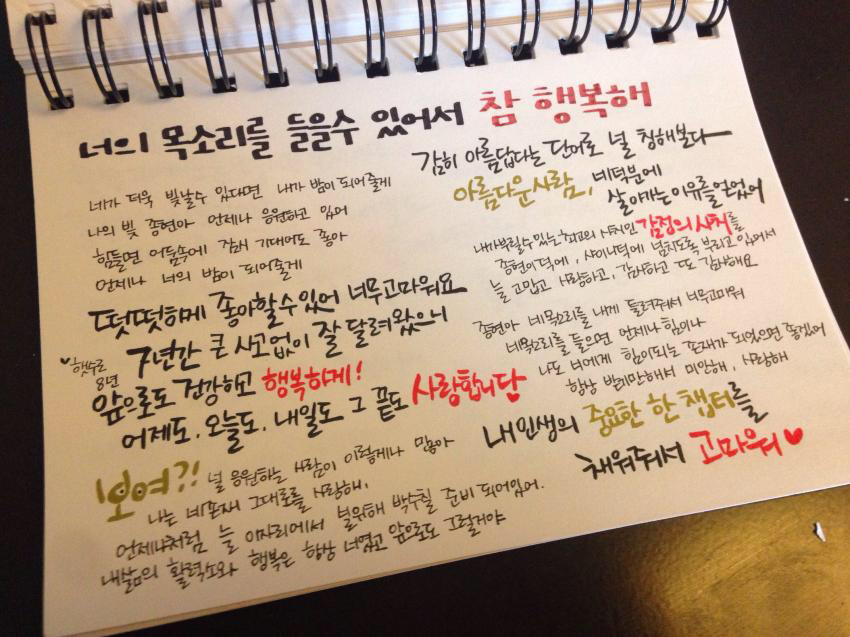 너의 목소리를 들을수 있어서 참 행복해
네가 더욱 빛날수 있다면 내가 밤이 되어줄게
나의 빛 종현아 언제나 응원하고 있어
힘들면 어둠속에 잠시 기대어도 좋아
언제나 너의 밤이 되어줄게
떳떳하게 좋아할수있어 너무고마워요
7년간 큰 사고없이 잘 달려왔으니
♥햇수로
8년
앞으로도 건강하고 행복하게!
어제도. 오늘도. 내일도 그 끝도 사랑합니다
보여?! 널 응원하는 사람이 이렇게나 많아
나는 네존재 그대로를 사랑해.
언제나처럼 늘 이자리에서 널위해 박수칠 준비 되어있어.
내삶의 활력소와 행복은 항상 너였고 앞으로도 그럴거야
감히 아름답다는 단어로 널 칭해본다
아름다운사람, 네덕분에
살아가는이유를얻었어
내가부릴수있는 최고의 사치인 감정의 사치를
종현이덕에, 샤이니덕에 넘치도록 부리고 있어서
늘 고맙고 사랑하고, 감사하고 또 감사해요
종현아 네목소리를 내게 들려줘서 너무고마워
네목소리를 들으면 언제나 힘이나
나도 너에게 힘이되는 존재가 되었으면 좋겠어
항상 받기만해서 미안해, 사랑해
내인생의 중요한 한 챕터를
채워줘서 고마워♥